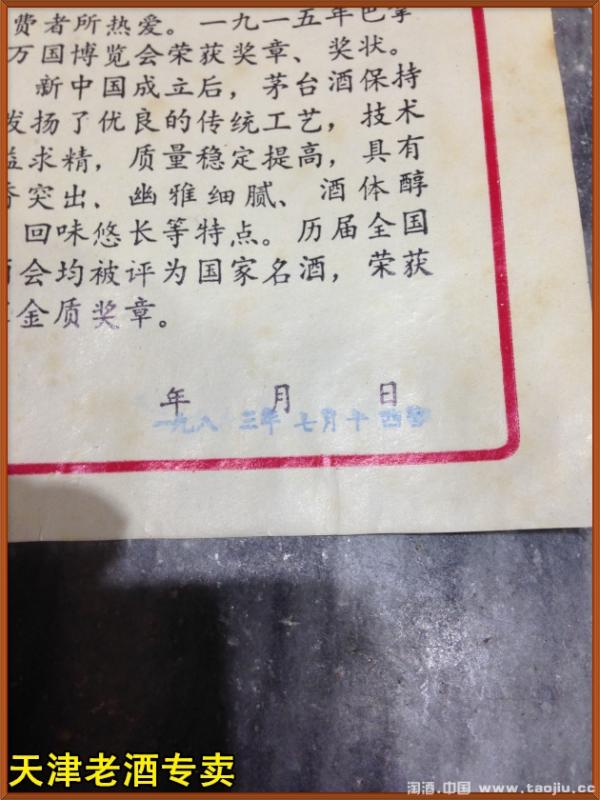 费者所热爱。一九一五年巴拿
万国博览会荣获奖章、奖状。
新中国成立后，茅台酒保持
发扬了优良的传统工艺，技术
益求精，质量稳定提高，具有
香突出、幽雅细腻、酒体醇
回味悠长等特点。历届全国
酒会均被评为国家名酒，荣获
金质奖章。
年 月 日
一九八三年七月十四
天津老酒专卖
淘酒.中国 www.taojiu.cc